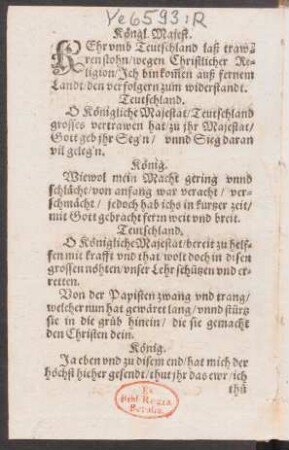 Ye 6593:R
Köngl. Majest.
KEhr vmb Teutschland laß trawå
ren stohn/wegen Christlicher Re-
ligion/Ich bin kom̃en auß fernem
Landt den verfolgern zum widerstandt.
Teutschland.
O Königliche Majestat/Teutschland
grosses vertrawen hat/zu jhr Majestat/
Gott geb jhr Seg'n/ vnnd Sieg daran
vil geleg'n.
König.
Wiewol mein Macht gering vnnd
schlächt/von anfang war veracht/ ver-
schmächt/ jedoch hab ichs in kurzer zeit/
mit Gott gebracht fern weit vnd breit.
Teutschland.
O Königliche Majestat/bereit zu helf-
fen mit krafft vnd that wolt doch in disen
grossen nöhten/vnser Lehr schützen vnd er-
retten.
Von der Papisten zwang vnd trang/
welcher nun hat gewäret lang/vnnd stürtz
sie in die grüb hinein/ die sie gemacht
den Christen dein.
König.
Ja eben vnd zu disem end/hat mich der
höchst hieher gesendt/thut jhr das ewr/ich
thů
Ex
Bibl. Regia
Berolin.